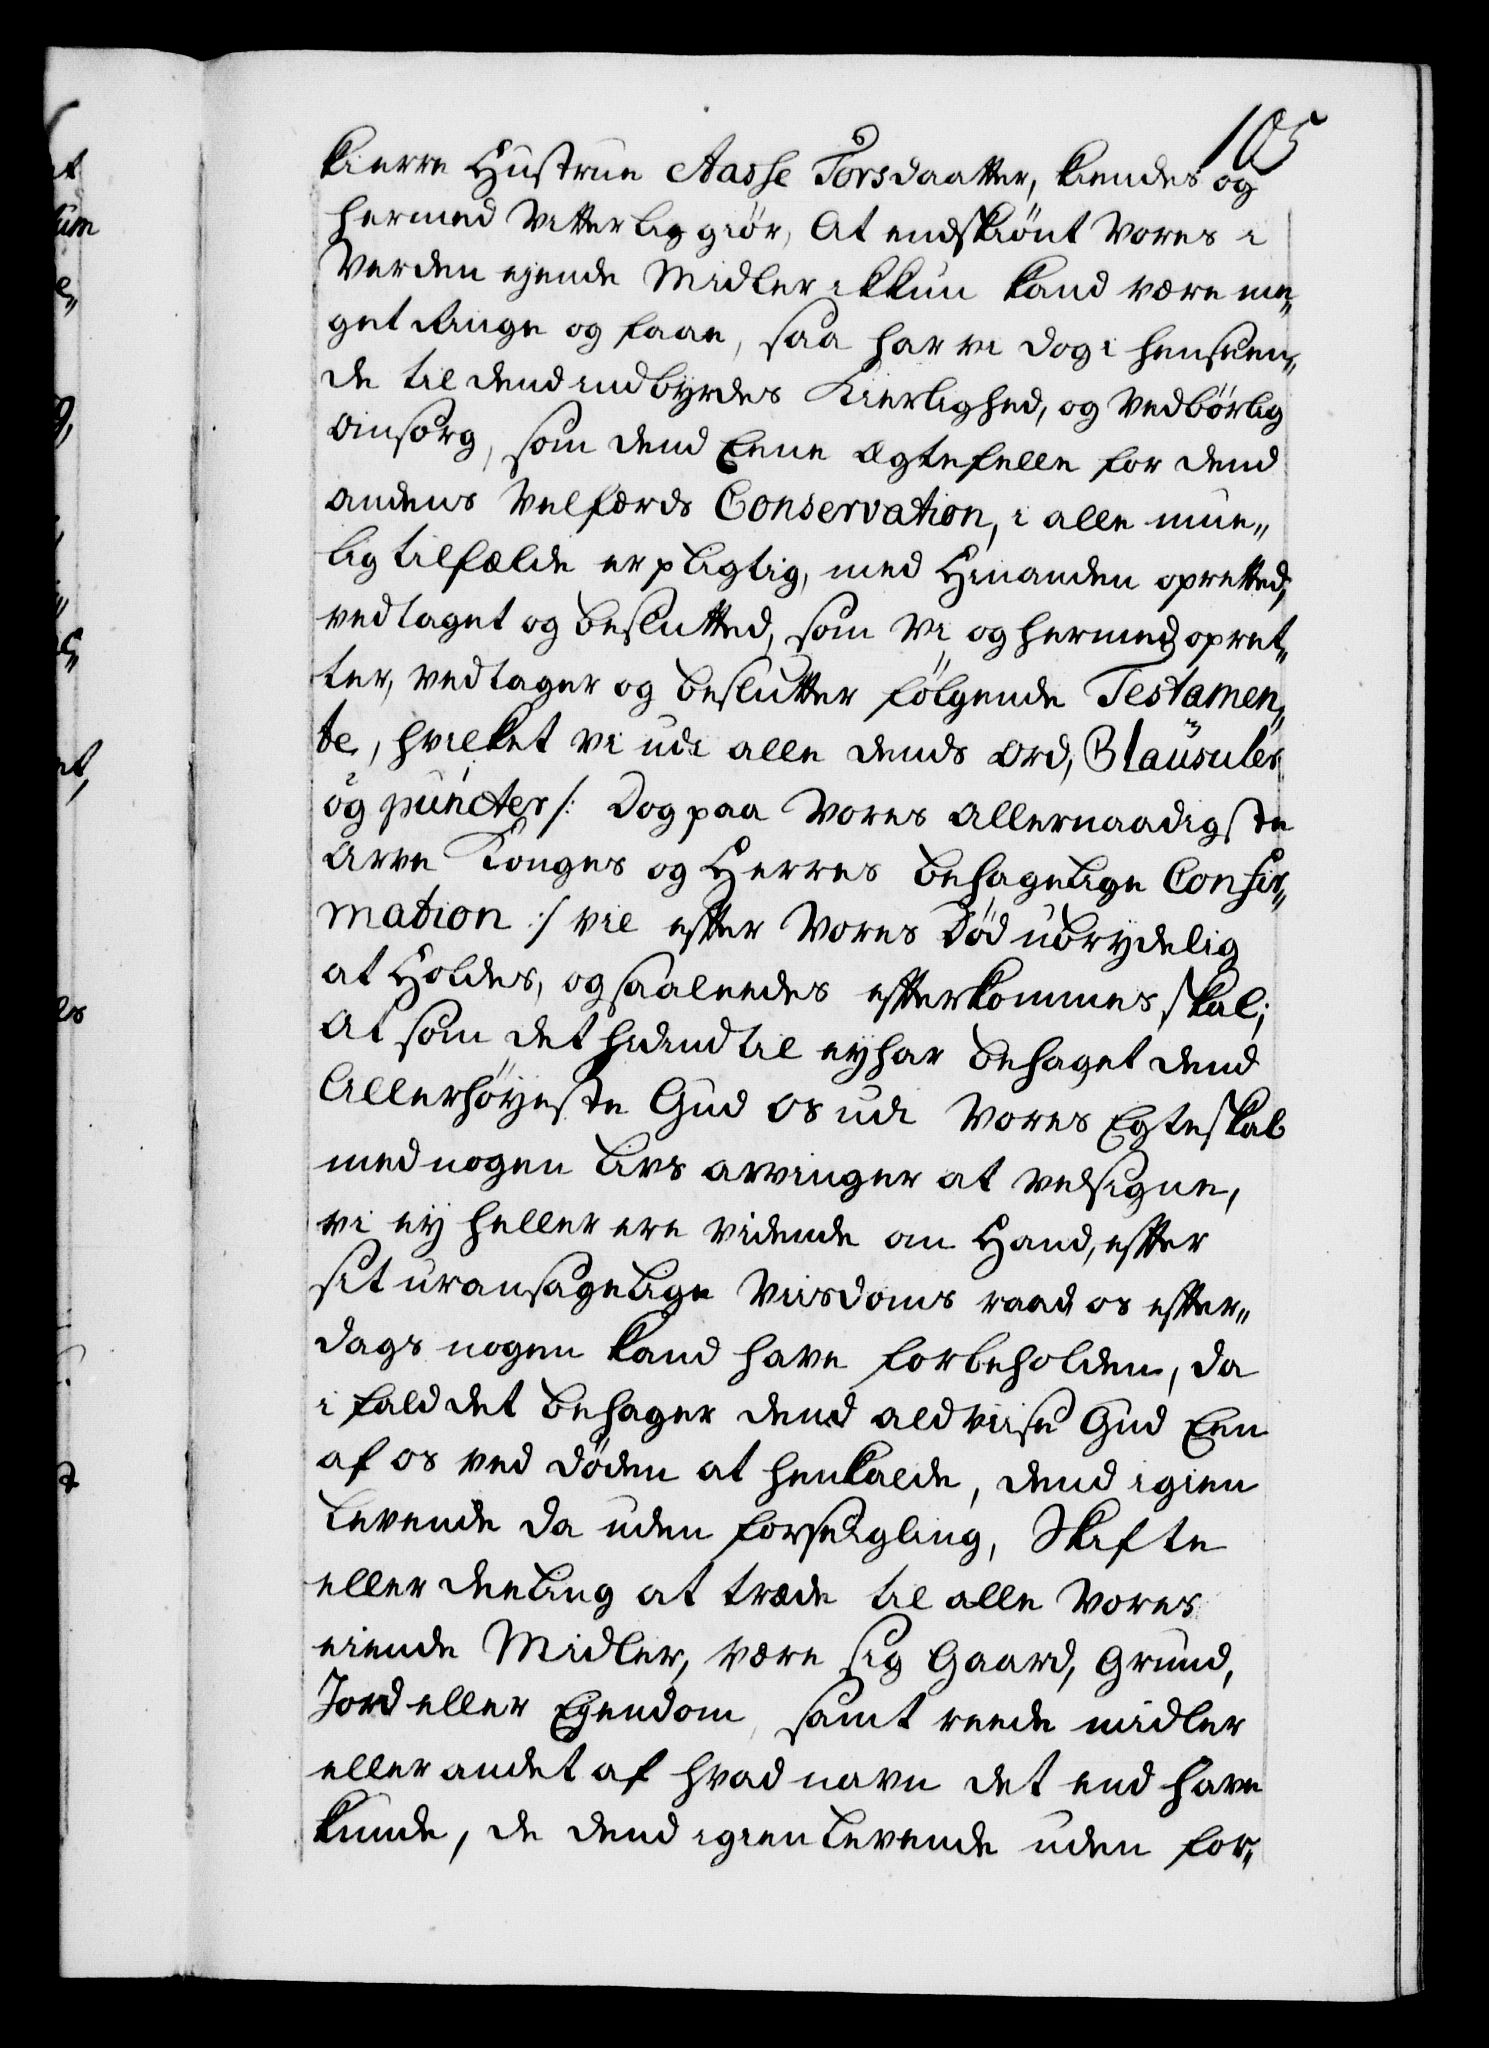 105
kierre Hustrue Aasse Torsdaatter, kiendes og
hermed Vitterlig giör, At endskiönt Vores i
Verden ejende Midler ikkun kand være me„
get Ringe og faae, saa har vi dog i henseen„
de til dend indbyrdes Kierlighed, og Vedbörlig
omsorg, som dend Eene Ægtefelle for dend
andens Velfærds Conservation, i alle mue„
lig tilfælde er pligtig, med Hinanden opretted,
vedtaget og beslutted, som Vi og hermed opret„
ter, vedtager og beslutter fölgende Testamen„
te, hvilket vi udi alle dends Ord, Clausuler
og puncter /: Dog paa Vores Allernaadigste
Arve Konges og Herres behagelige Confir„
mation :/ vil efter Vores Död ubrydelig
at Holdes, og saaleedes efterkommes skal;
At som det hidindtil ey har behaget dend
Allerhöyeste Gud os udi Vores Egteskab
med nogen Livs arvinger at velsigne,
vi ey heller ere vidende om Hand, efter
sit uransagelige Viisdoms raad os efter„
dags nogen kand have forbeholden, da
i fald det behager dend alviise Gud Een
af os ved döden at henkalde, dend igien
Levende da uden forseigling, Skifte
eller deeling at træde til alle Vores
eiende Midler, være sig Gaard, Grund,
Jord eller Ejendom, samt reede midler
eller andet af hvad navn det end have
kunde, de dend igienlevende uden for„